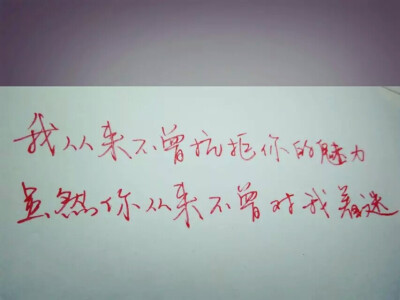 我从来不曾抗拒你的魅力
虽然你从来不曾对我着迷